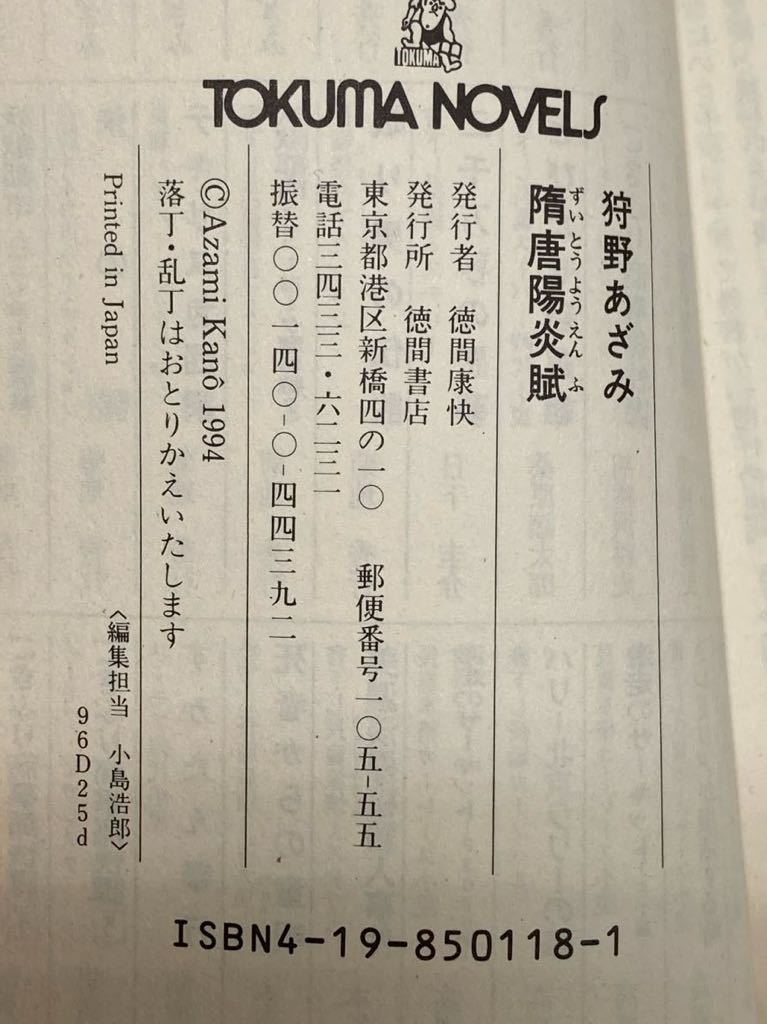 TOKUMA
TOKUMA NOVELS
狩野あざみ
隋唐陽炎賦
ずいとうようえんふ
発行者 徳間康快
発行所 徳間書店
東京都港区新橋四の一〇 郵便番号一〇五-五五
電話三四三三・六二三一
振替〇〇一四〇-〇-四四三九二
©Azami Kanô 1994
落丁・乱丁はおとりかえいたします
Printed in Japan
〈編集担当 小島浩郎〉
96D25d
ISBN4-19-850118-1